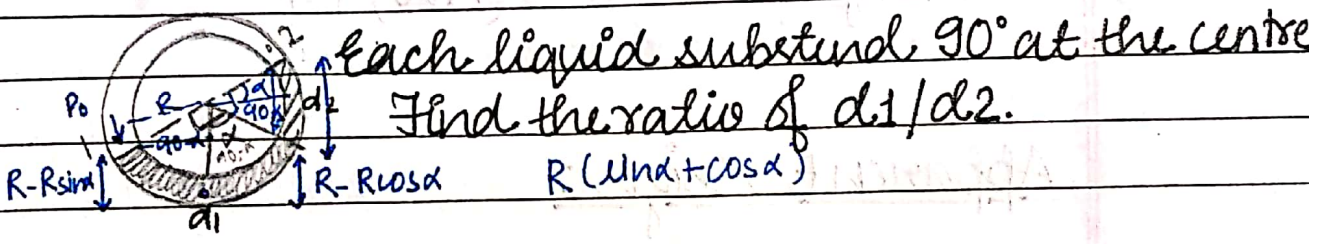 Each liquid substend 90° at the centre
Find the ratio of d1/d2.
P₀ R 2 α 90-α d2
1 90-α α
R-Rsinα R-Rcosα R(sinα+cosα)
d1